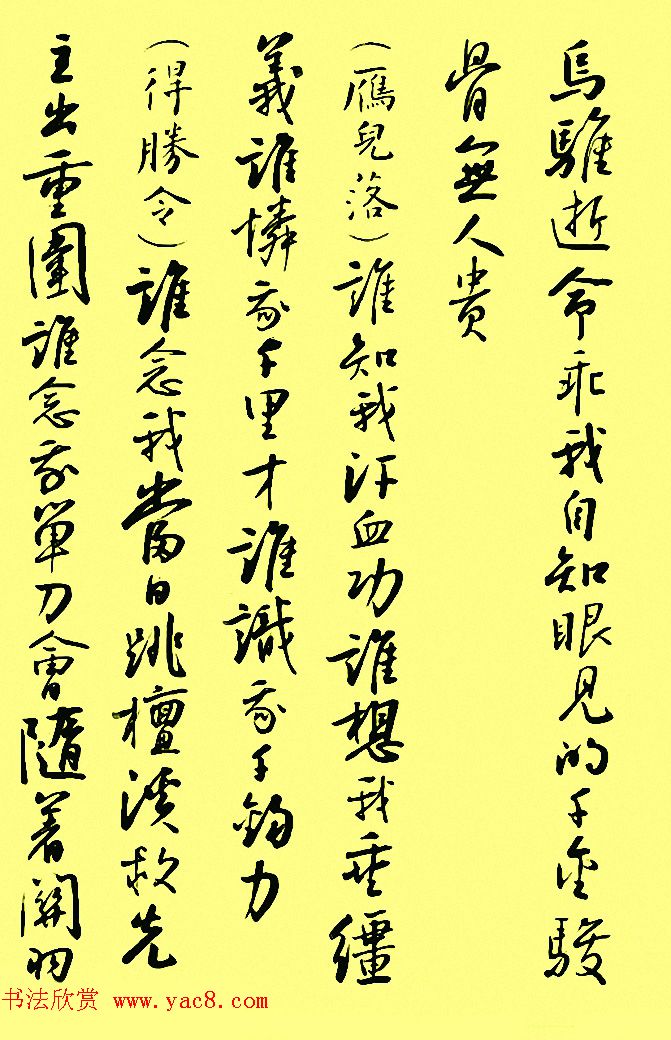 烏騅逝命乖我自知眼見的千金駿
骨無人貴
（雁兒落）誰知我汗血功誰想我垂繮
義誰憐我千里才誰識我千鈞力
（得勝令）誰念我當日跳檀溪救先
主出重圍誰念我單刀會隨著關羽
书法欣赏 www.yac8.com